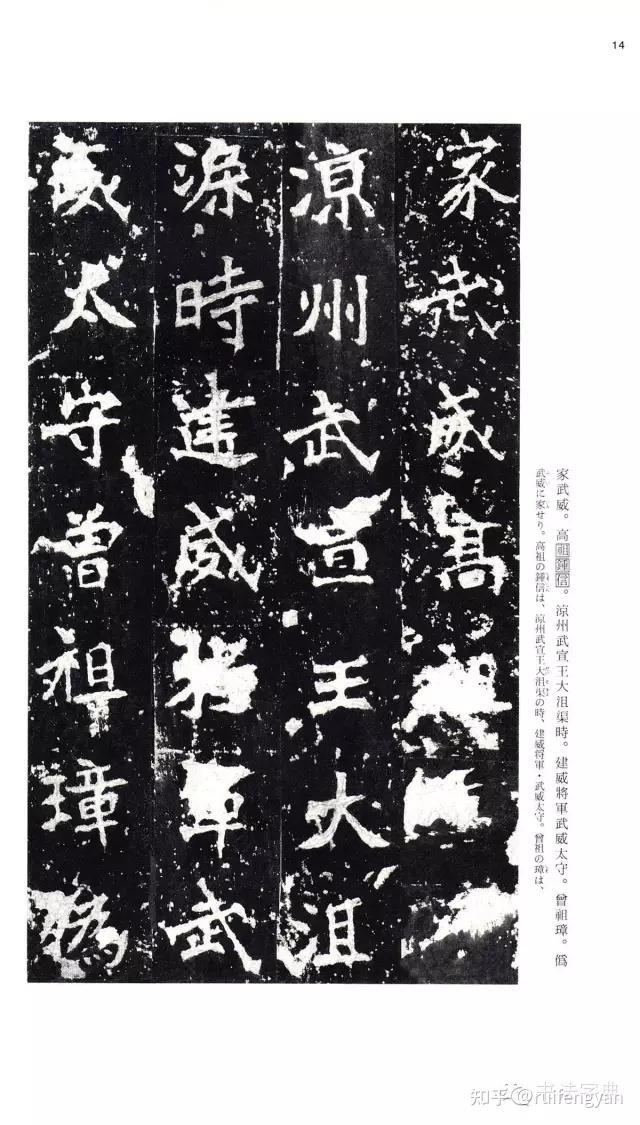 14
家武威高祖
涼州武宣王大沮
渠時建威將軍武
威太守曾祖璋偽
家武威。高祖鍾信。涼州武宣王大沮渠時。建威將軍武威太守。曾祖璋。僞
武威に家せり。高祖の鍾信は、涼州武宣王大沮渠の時、建威将軍・武威太守。曾祖の璋は、
书法字典
知乎 @ruifengyan